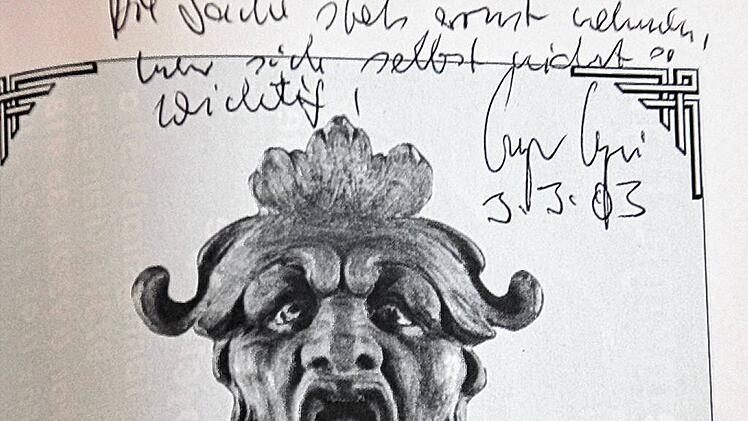 Die Sache stets ernst nehmen,
nur sich selbst nicht so
wichtig!
3.3.03